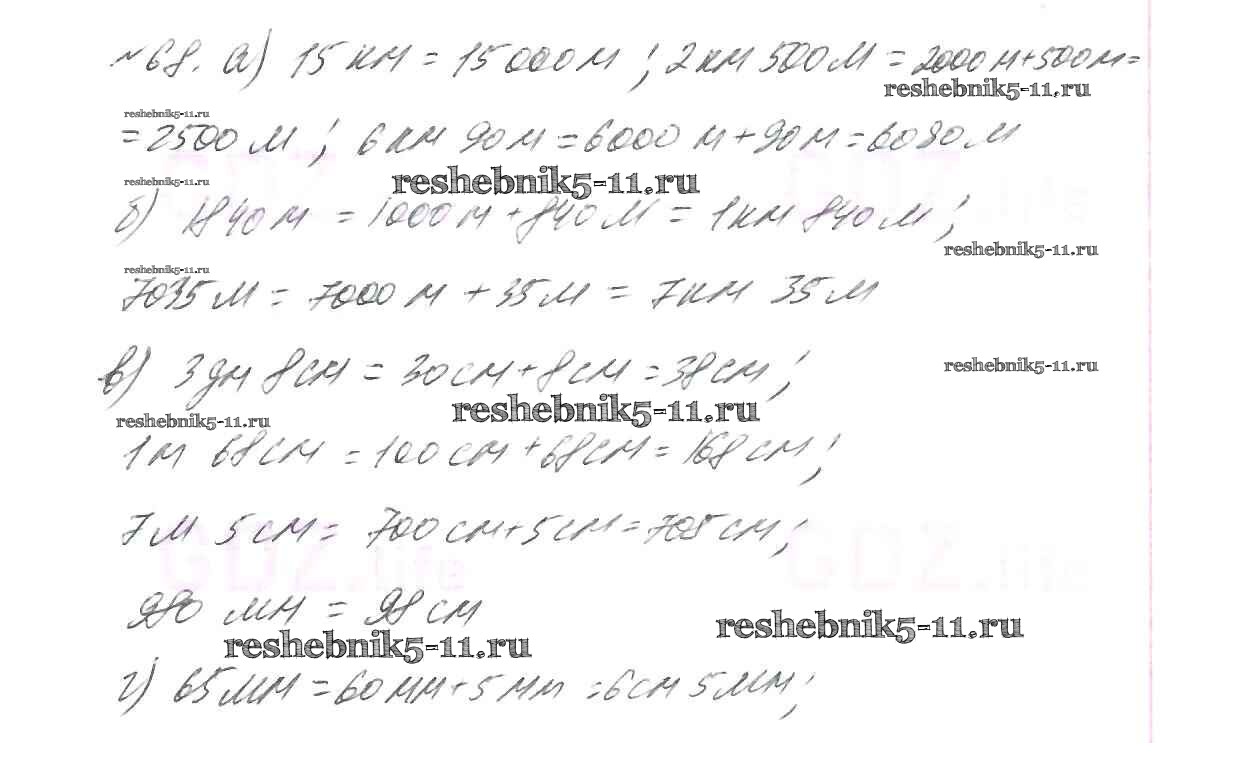 №68. а) 15 км = 15000 м; 2 км 500 м = 2000 м + 500 м =
reshebnik5-11.ru
reshebnik5-11.ru
= 2500 м; 6 км 90 м = 6000 м + 90 м = 6090 м
reshebnik5-11.ru
reshebnik5-11.ru
б) 1840 м = 1000 м + 840 м = 1 км 840 м;
reshebnik5-11.ru
reshebnik5-11.ru
7035 м = 7000 м + 35 м = 7 км 35 м
в) 3 дм 8 см = 30 см + 8 см = 38 см;
reshebnik5-11.ru
reshebnik5-11.ru
reshebnik5-11.ru
1 м 68 см = 100 см + 68 см = 168 см;
7 м 5 см = 700 см + 5 см = 705 см;
GDZ.life
GDZ.life
980 мм = 98 см
reshebnik5-11.ru
reshebnik5-11.ru
г) 65 мм = 60 мм + 5 мм = 6 см 5 мм;